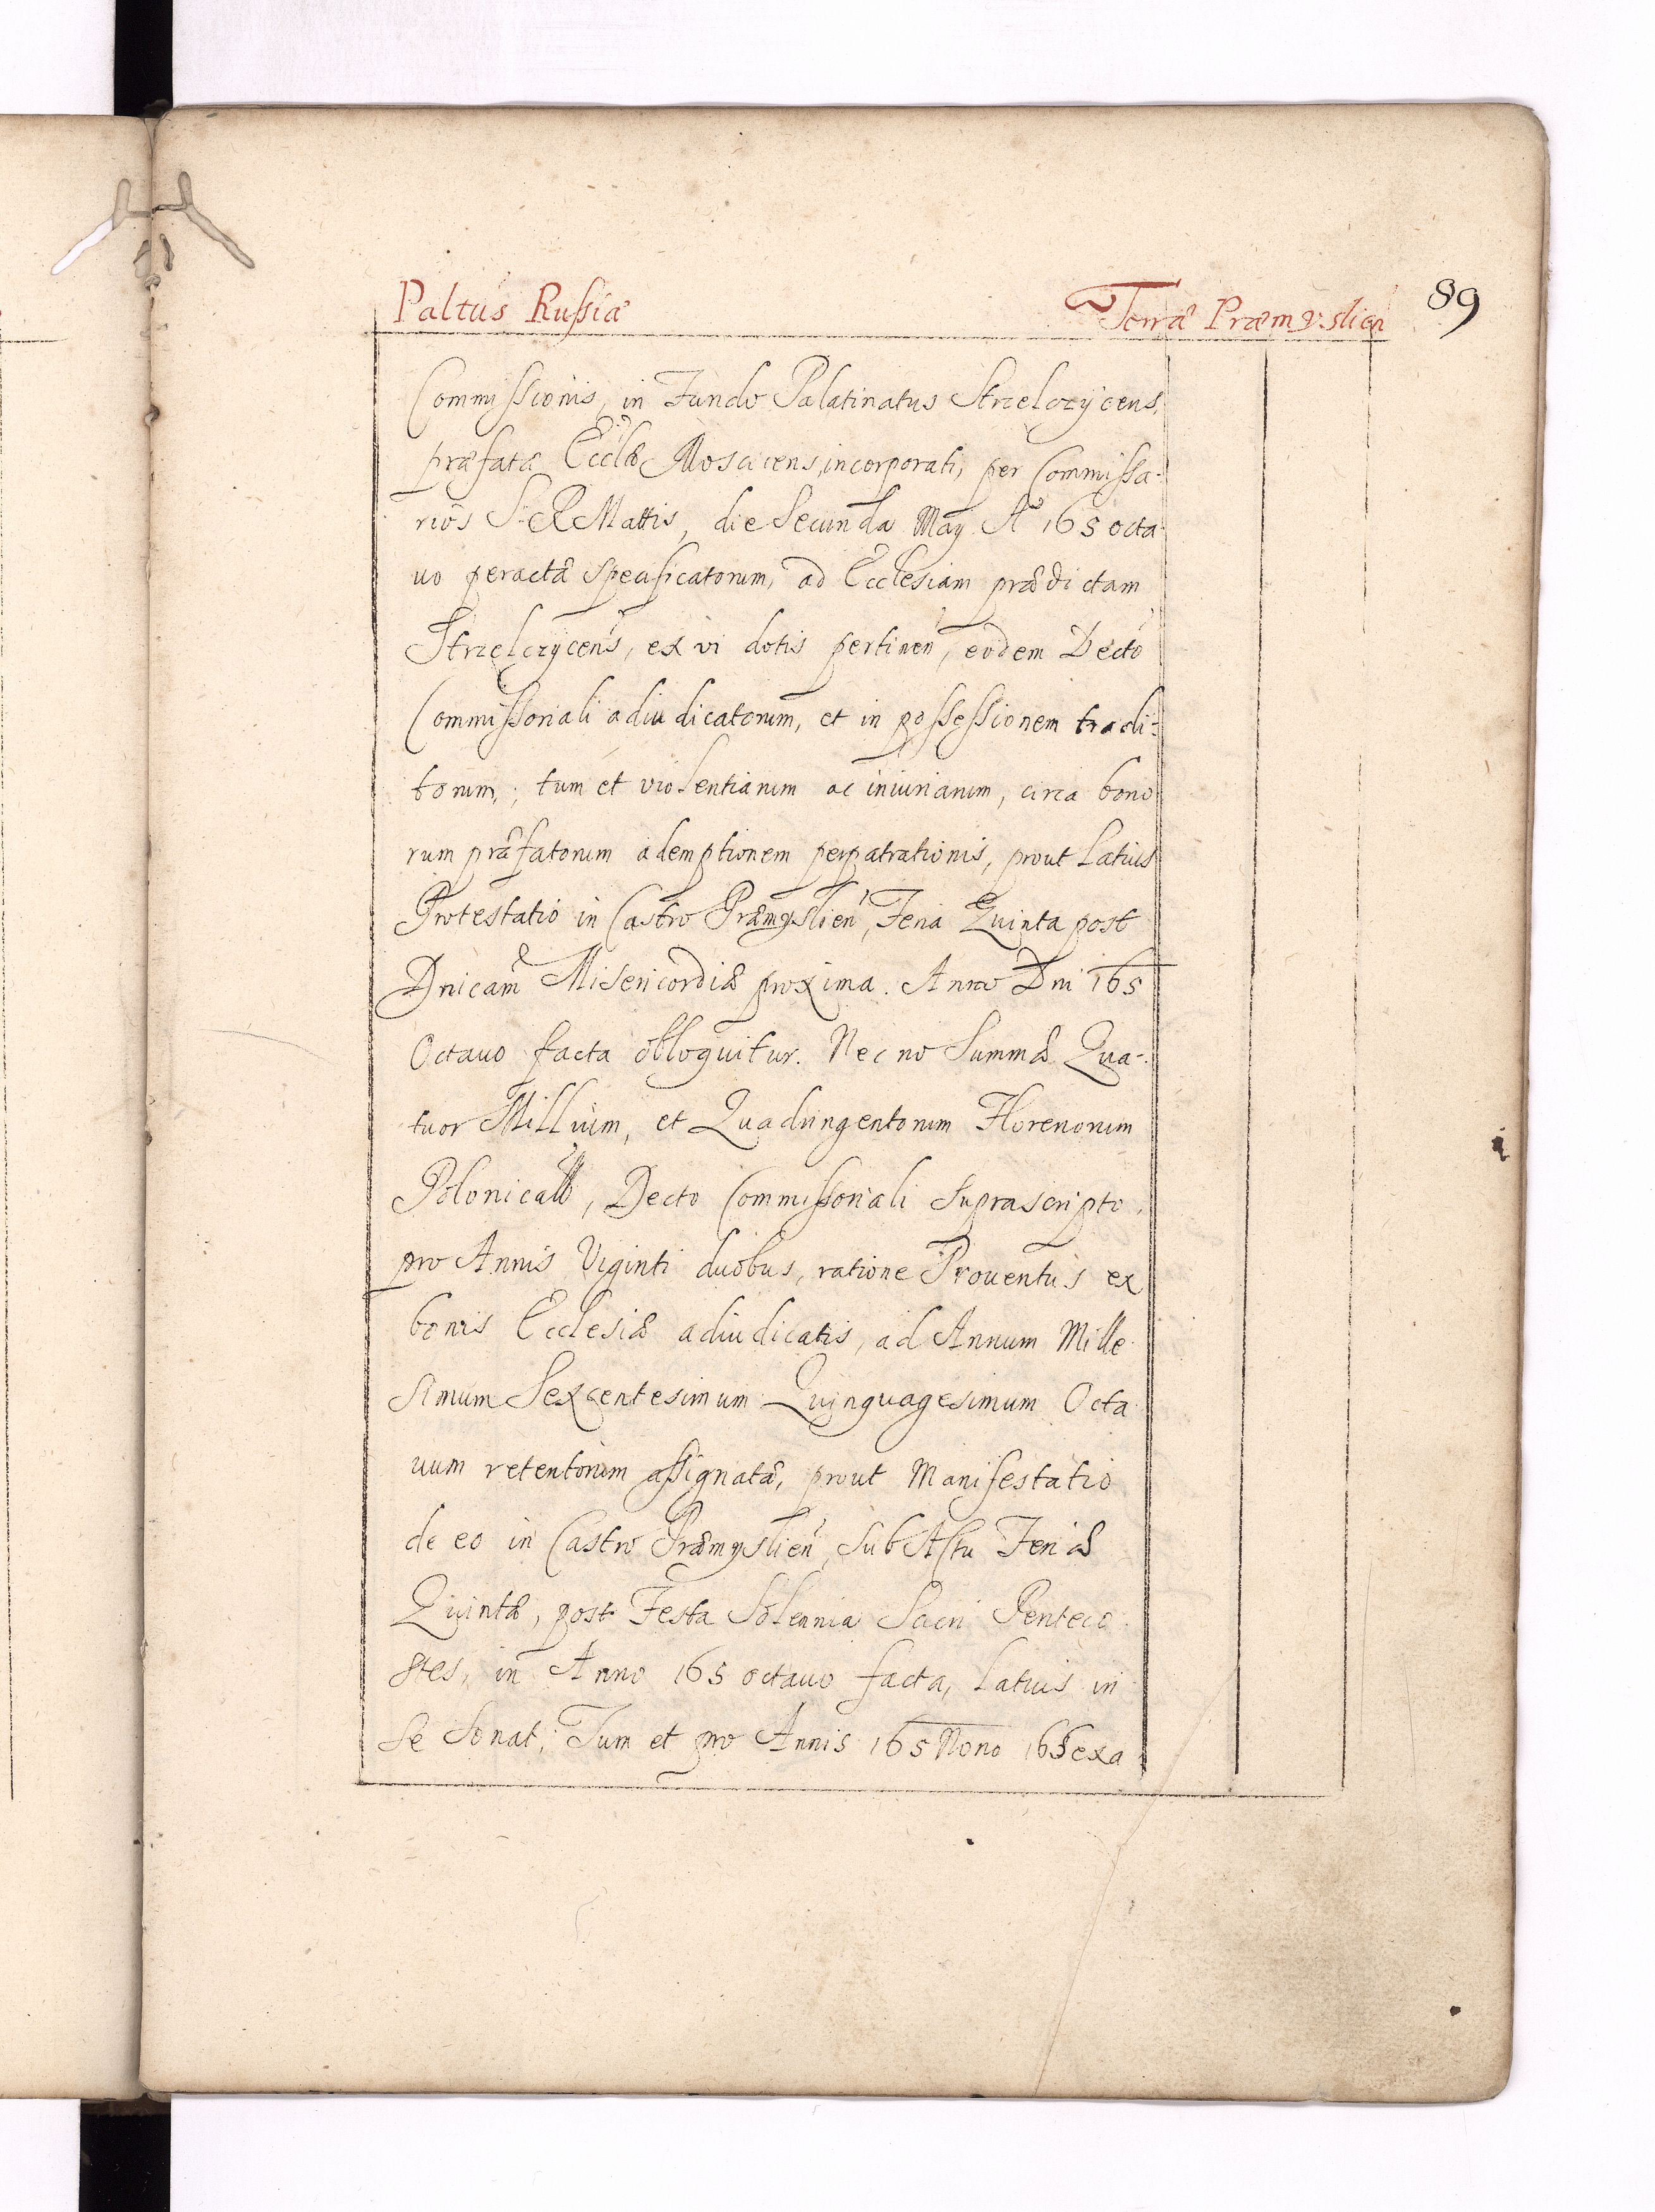 Paltus Russiæ Terræ Præmysliên 89
Commissionis, in Fundo Palatinatus Strzelczycens,
præfatæ Ecclæ Moscicens, incorporati, per Commissa-
rios S. R. Mattis, die Secunda May Aº 165 octa
uo peractæ Specificatorum, ad Ecclesiam prædictam
Strzelczycens, ex vi dotis pertinen, eodem Decto
Commissoriali adiudicatorum, et in possessionem tradi-
torum; tum et violentiarum ac iniuriarum, circa bono
rum præfatorum ademptionem perpatrationis, prout Latius
Protestatio in Castro Præmyslien, Feria Quinta post
Dnicam Misericordiæ proxima. Anno Dni 165
Octauo facta obloquitur. Nec no Summæ Qua-
tuor Millium, et Quadringentorum Florenorum
Polonical, Decto Commissoriali Suprascripto,
pro Annis Viginti duobus, ratione Prouentus ex
bonis Ecclesiæ adiudicatis, ad Annum Mille
simum Sexcentesimum Quinquagesimum Octa
uum retentorum assignatæ, prout Manifestatio
de eo in Castro Præmyslien, Sub Actu Feriæ
Quintæ, post Festa Solennia Sacri Penteco
stes, in Anno 165 octauo facta, Latius in
se Sonat; Tum et pro Annis 165 Nono 16Sexa